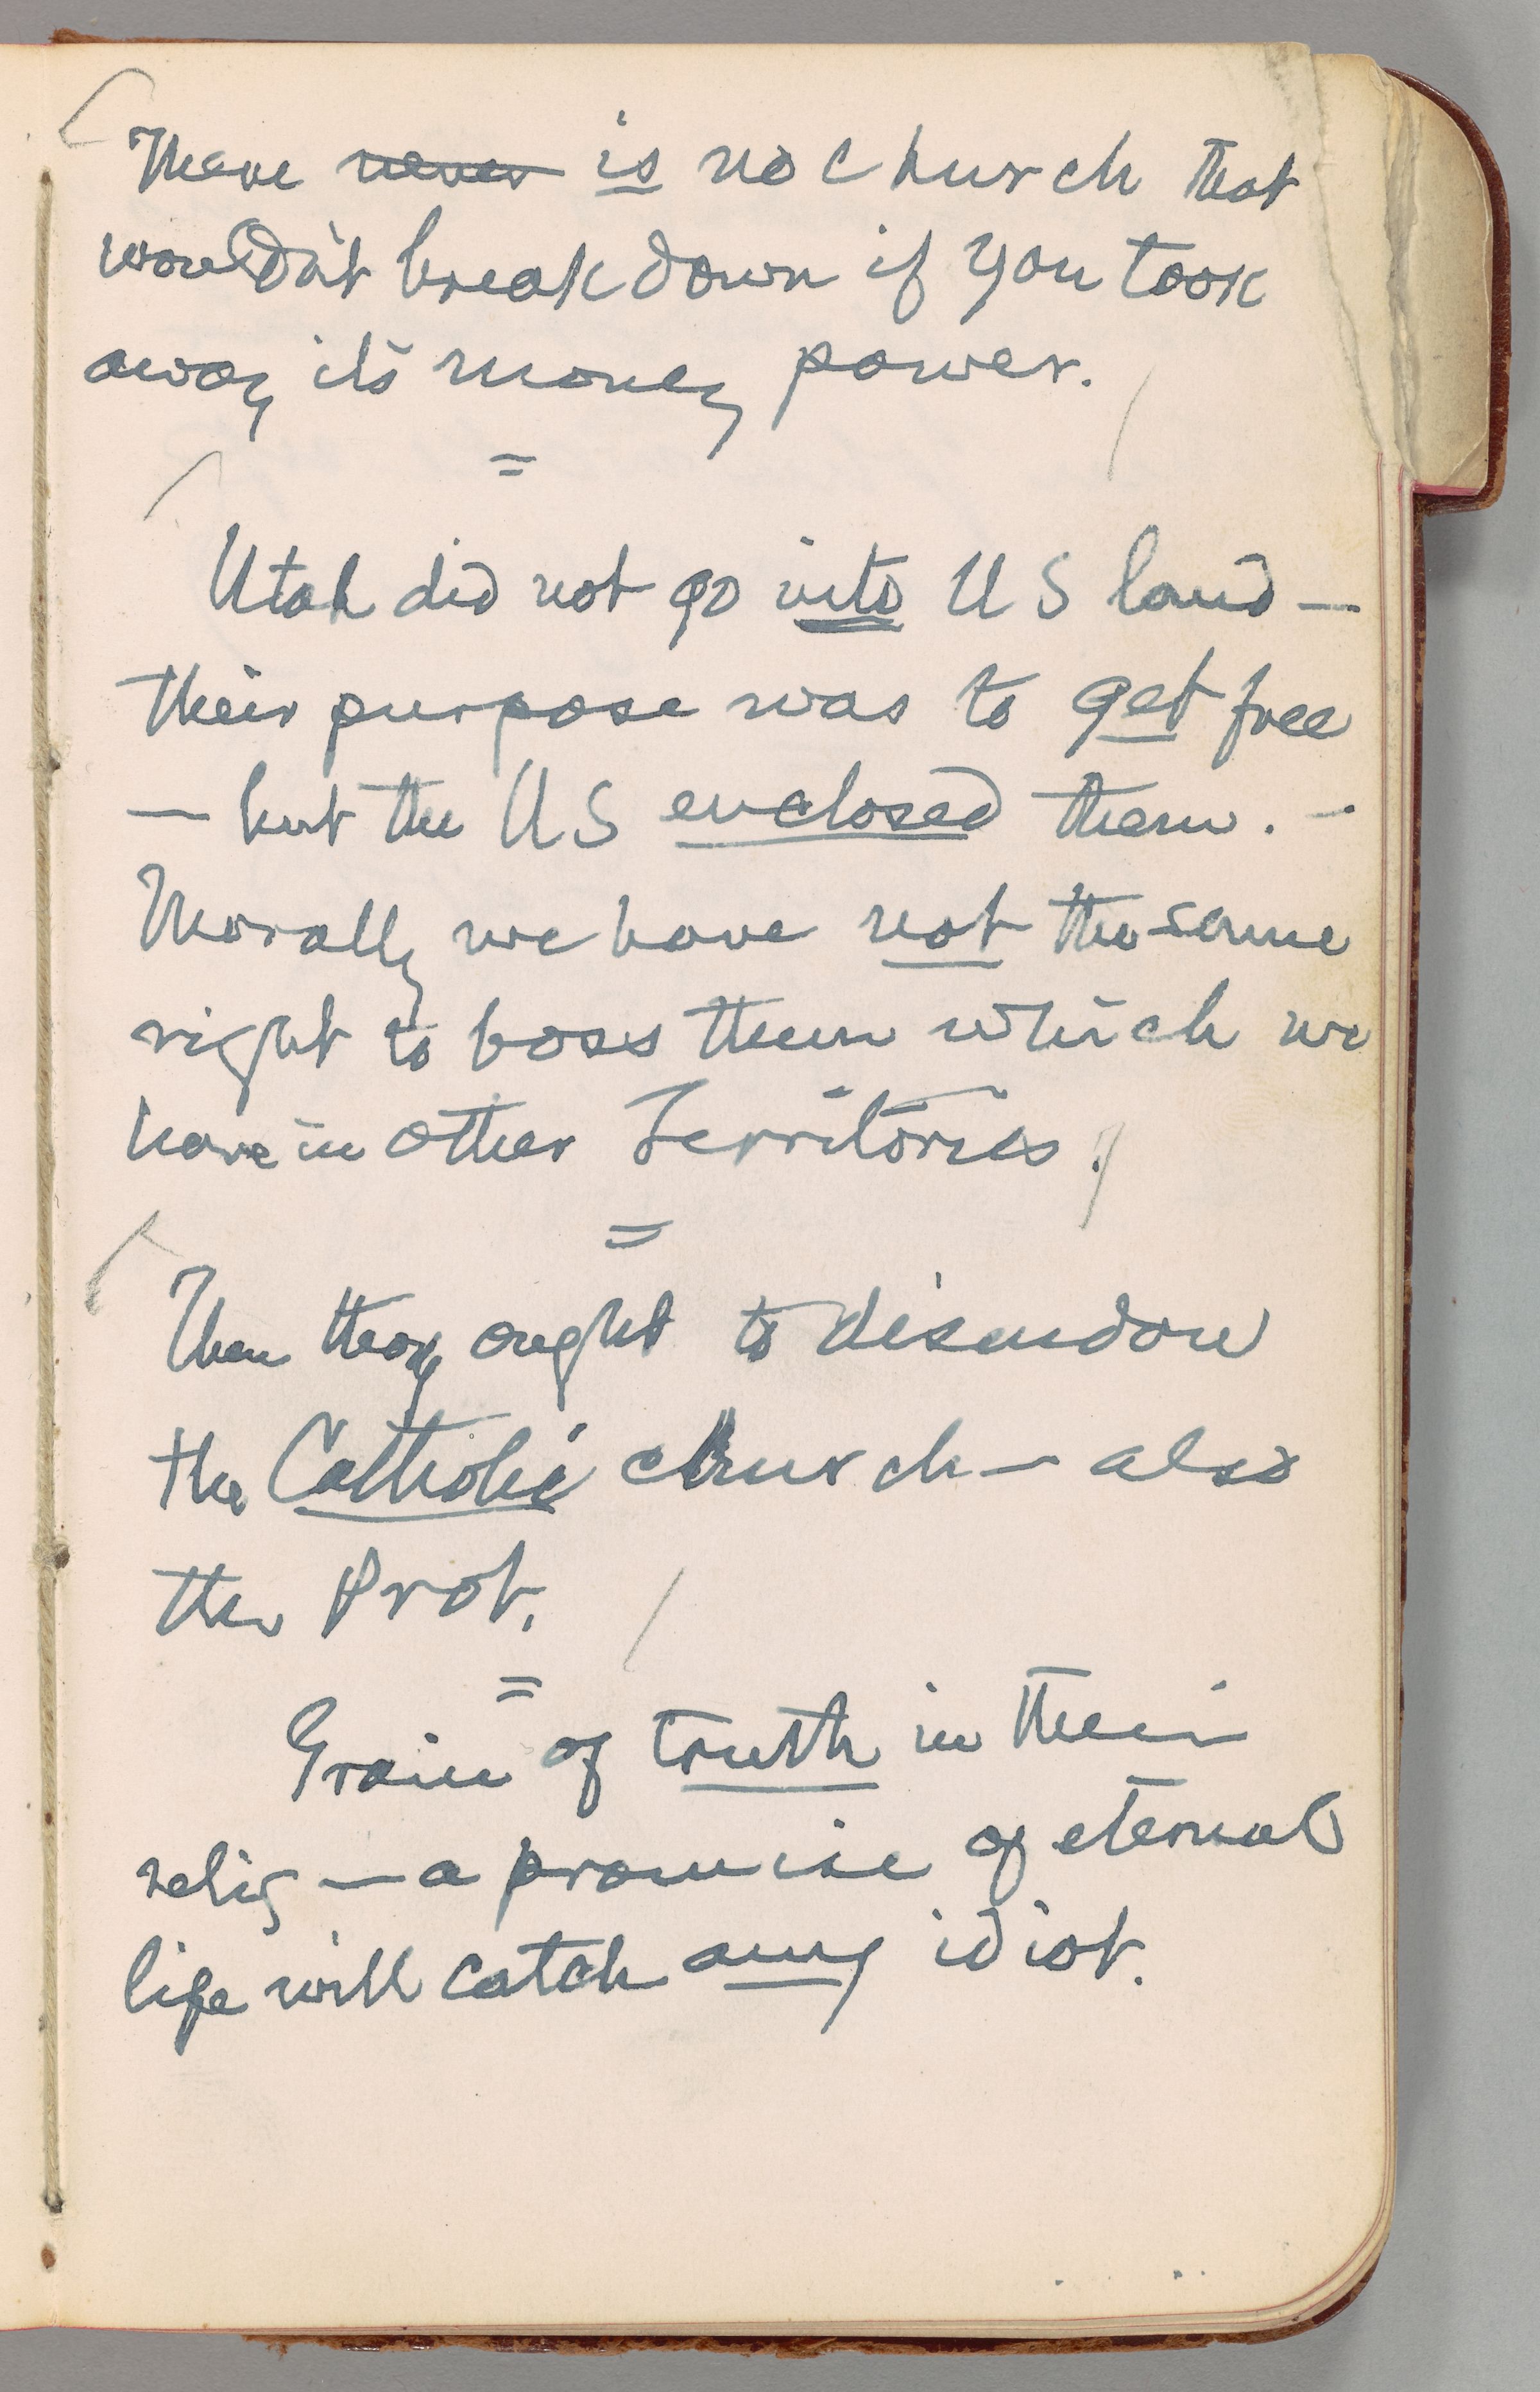 There never is no church that
wouldn't break down if you took
away its money power.
=
Utah did not go into US land —
their purpose was to get free
— but the US enclosed them. —
Morally we have not the same
right to boss them which we
have in other Territories.
=
Then they ought to disendow
the Catholic church — also
the Prot.
=
Grain of truth in their
relig — a promise of eternal
life will catch any idiot.